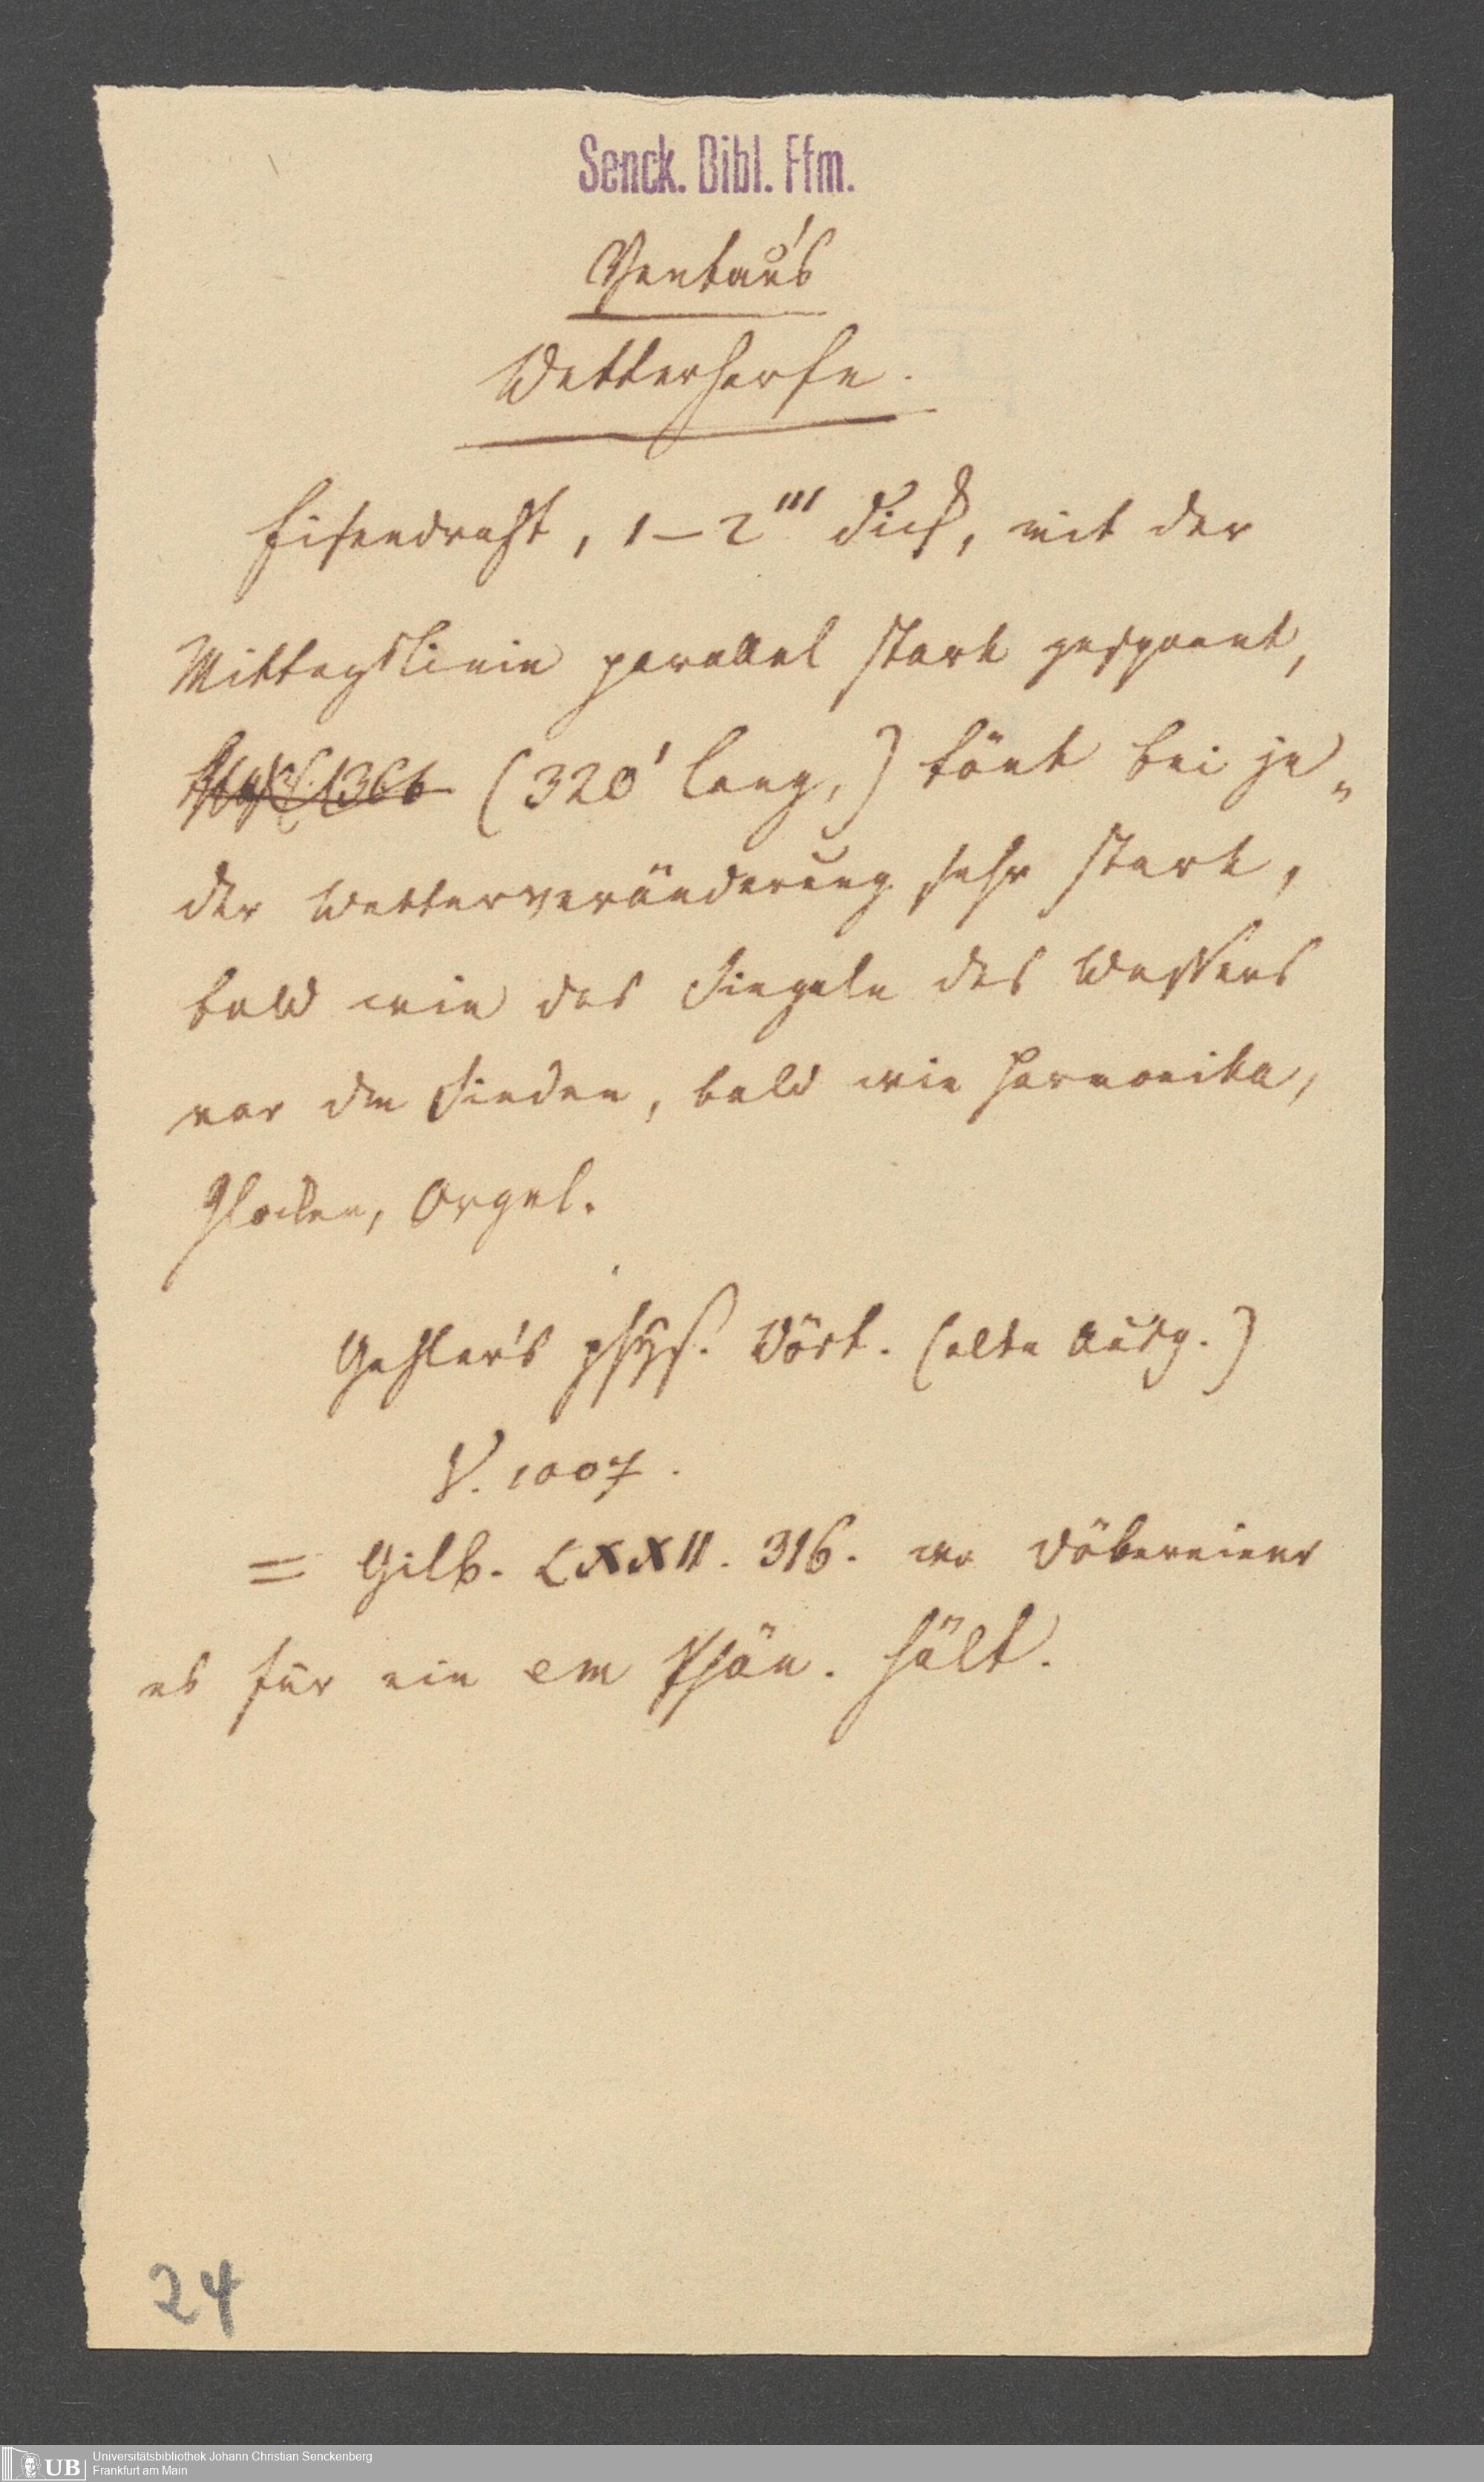 Senck. Bibl. Ffm.
Ventau's
Wetterharfe.
Eisendraht, 1–2''' dick, mit der
Mittagslinie parallel stark gespannt,
(320' lang,) tönt bei je„
der Wetterveränderung sehr stark,
bald wie das Singeln des Wassers
vor dem Sieden, bald wie Harmonika,
Glocken, Orgel.
Gehler's phys. Wört. (alte Ausg.)
V. 1007.
= Gilb. LXXII. 316. wo Döbereiner
es für ein em Phän. hält.
24
UB
Universitätsbibliothek Johann Christian Senckenberg
Frankfurt am Main